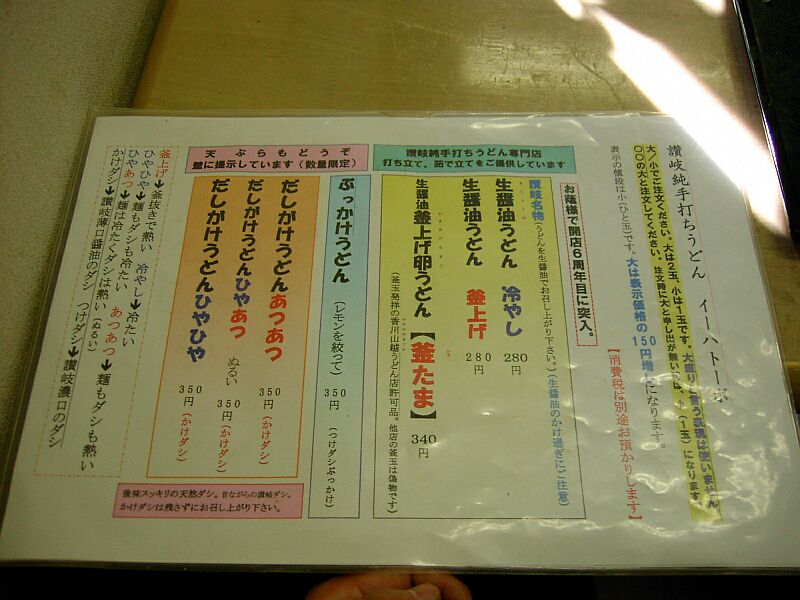 讃岐純手打ちうどん　イーハトーボ
大/小でご注文ください。大は2玉、小は1玉です。大盛りと言う表現は使いません
○○の大と注文してください。注文時に大と申し出が無い時は、小(1玉)になります。
表示の値段は小(ひと玉)です。大は表示価格の150円増しになります。
【消費税は別途お預かりします】
讃岐純手打ちうどん専門店
打ち立て、茹で立てをご提供しています
お蔭様で開店6周年目に突入。
讃岐名物(うどんを生醤油でお召し上がり下さい。)(生醤油のかけ過ぎにご注意)
生醤油うどん　冷やし　280円
生醤油うどん　釜上げ　280円
生醤油釜上げ卵うどん【釜たま】340円
(釜玉発祥の香川山越うどん店許可品。他店の釜玉は偽物です)
天ぷらもどうぞ
壁に提示しています(数量限定)
ぶっかけうどん(レモンを絞って)350円(つけダシぶっかけ)
だしがけうどんあつあつ　350円(かけダシ)
だしがけうどんひやあつ　ぬるい　350円(かけダシ)
だしがけうどんひやひや　350円(かけダシ)
後味スッキリの天然ダシ。昔ながらの讃岐ダシ。
かけダシは残さずにお召し上がり下さい。
釜上げ➔釜抜きで熱い　冷やし➔冷たい
ひやひや➔麺もダシも冷たい　あつあつ➔麺もダシも熱い
ひやあつ➔麺は冷たくダシは熱い(ぬるい)
かけダシ➔讃岐薄口醤油のダシ　つけダシ➔讃岐濃口のダシ